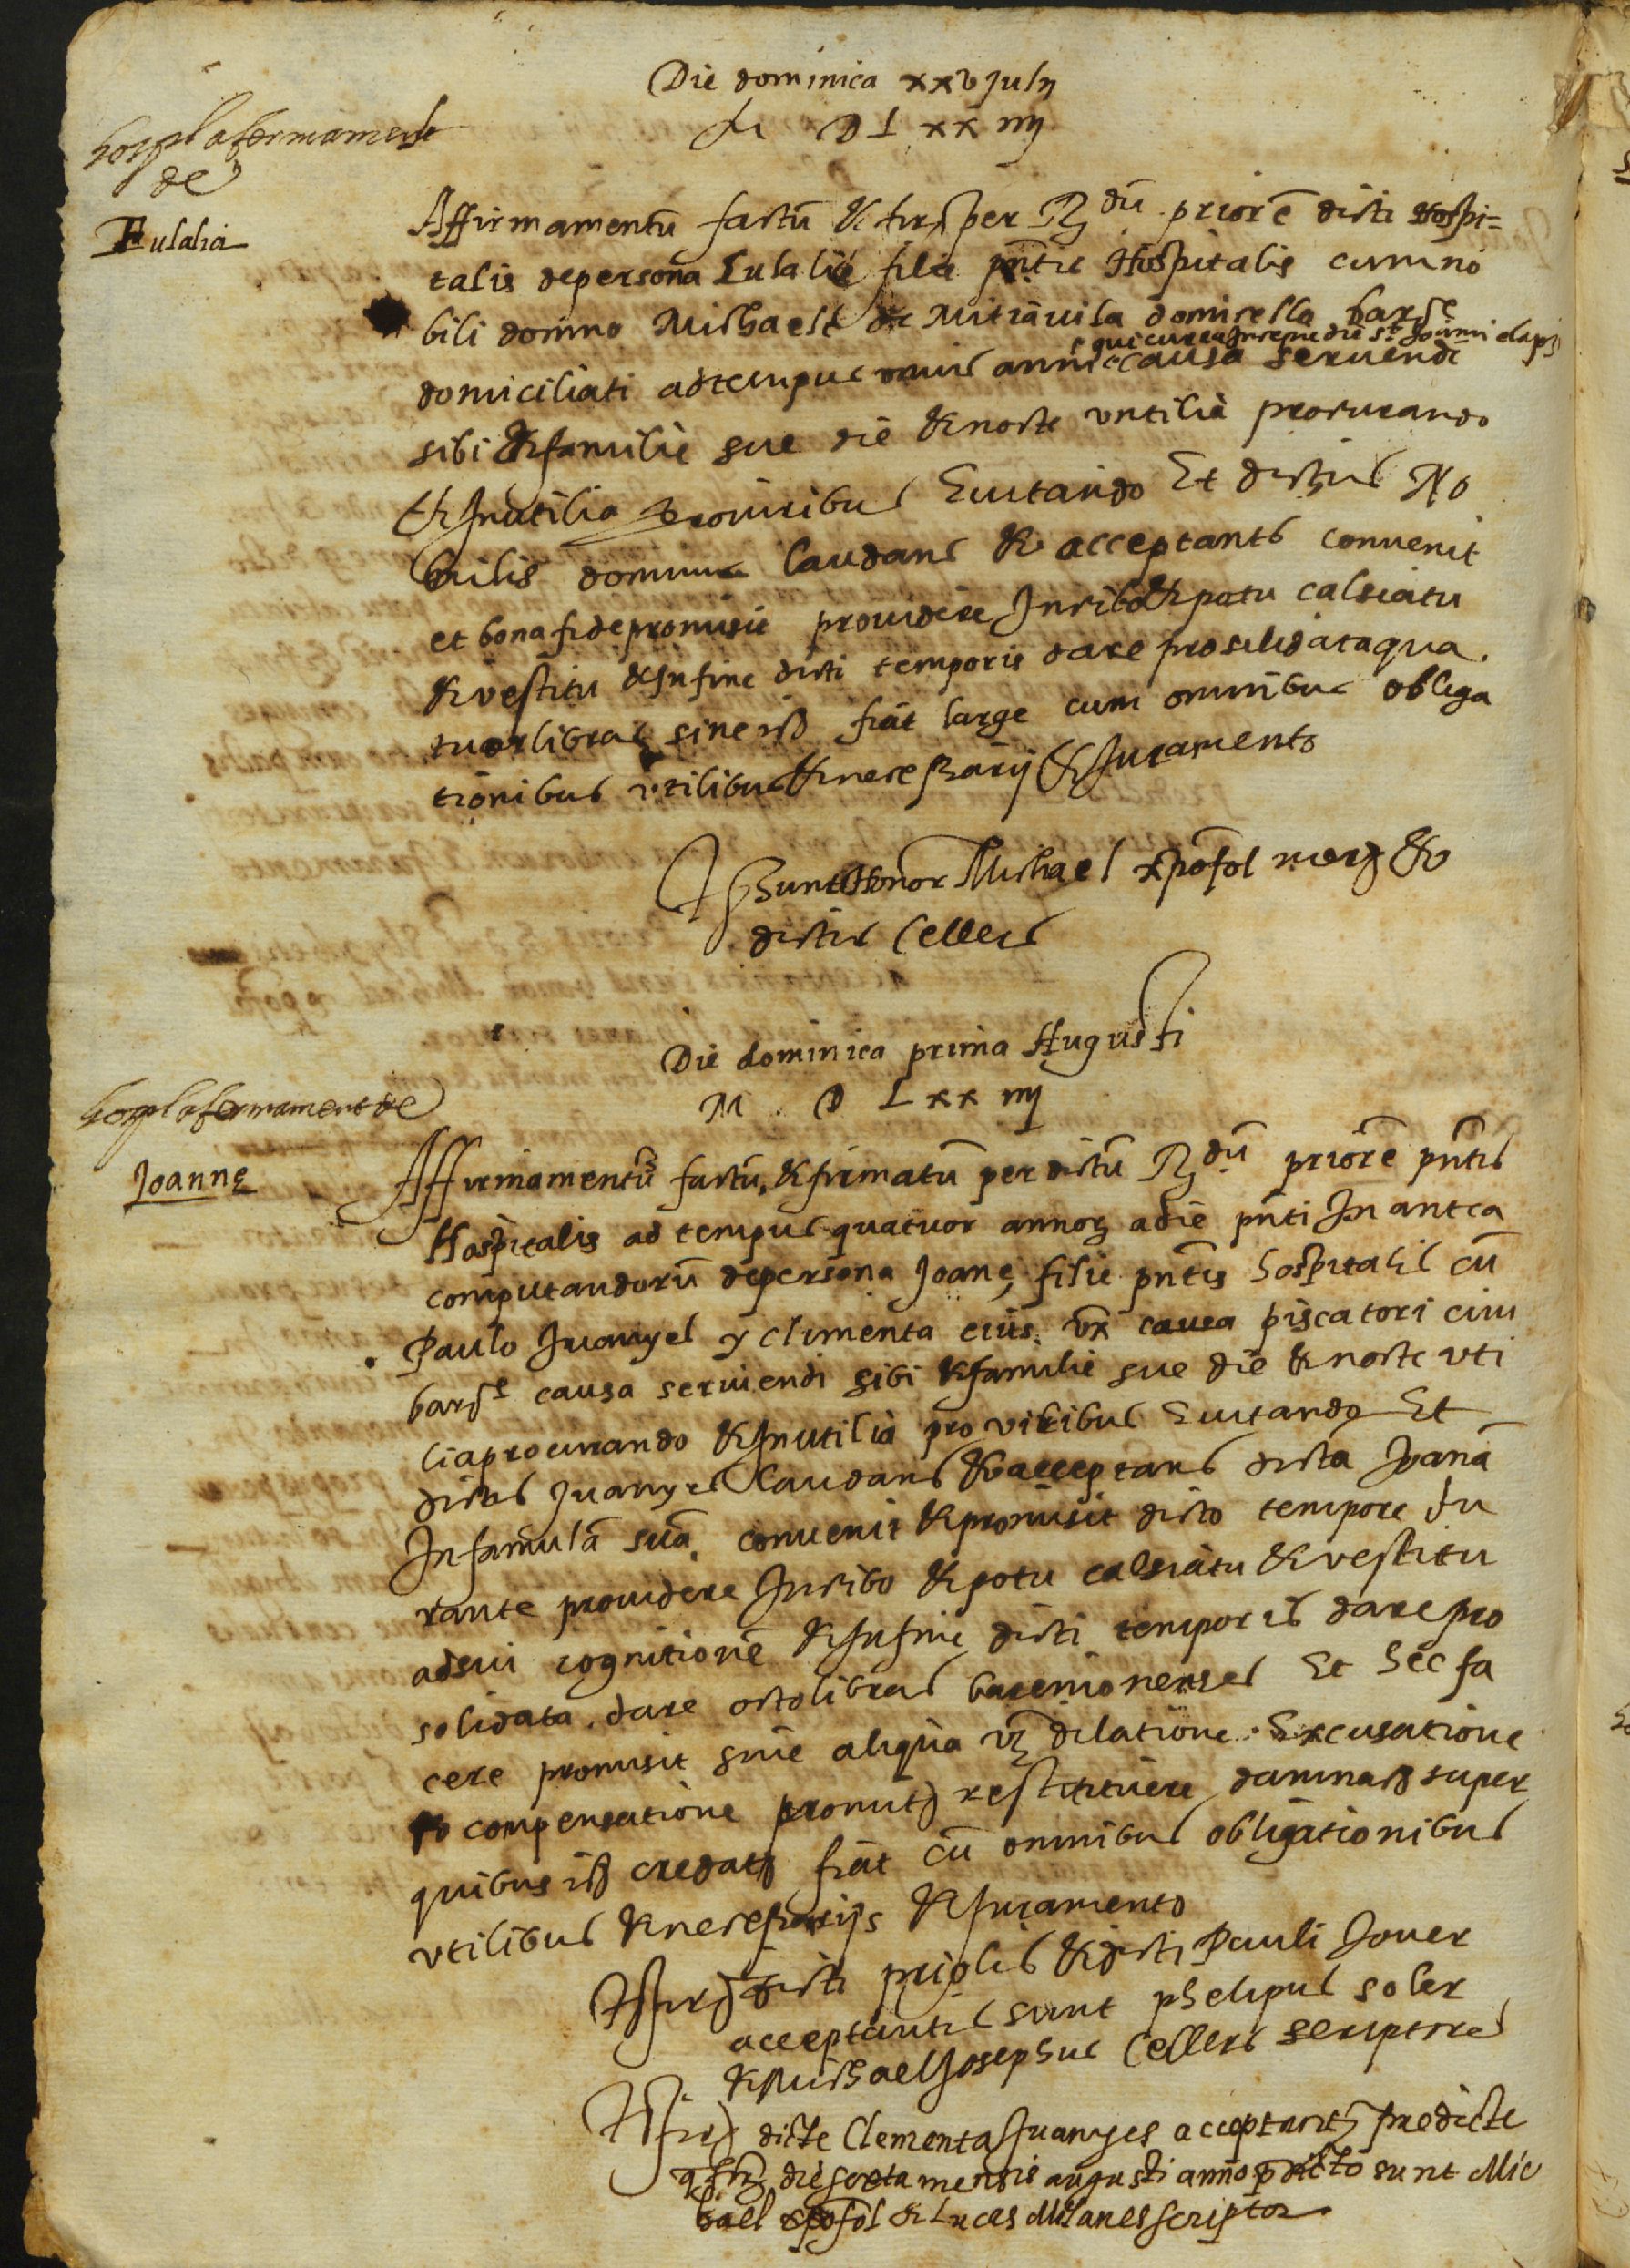 Die dominica xxv Julij
M D L xx iiij
hospl afermament
de
Eulalia
Affirmamentũ factũ & fir per Rdũ priorẽ dicti Hospi=
talis de persona Eulalie filie pñtis Hospitalis cum no
bili domino Michaele de Mitjavila domicello barne
qui currere Incepit die st Joanni elapsi
domiciliati ad tempus unius anni causa serviendi
sibi & familie sue die & nocte untilia procurando
& Inutilia pro viribus Evitando Et dictus No
bilis dominus laudans & acceptants convenit
et bona fide promisit providere In cibo & potu calsiatu
& vestitu & In fine dicti temporis dare pro solidata qua
tuor libras sine fiat large cum omnibus obliga
tionibus utilibus & necessarij & Juramento
Ts sunt Honor Michael xpõfol merz &
dictus Cellers
Die dominica prima Augusti
M D L xx iiij
hospl afermament de
Joanne
Affirmamentũ factũ, & firmatũ per dictũ Rdũ priorẽ pñtis
Hospitalis ad tempus quatuor annoz a die pñti In antea
computandorũ de persona Joane, filie pñtis hospitalis cũ
Paulo Juanyel y Climenta eius ux piscatori civi
barne causa serviendi sibi & familie sue die & nocte uti
lia procurando & Inutilia pro viribus Evitando Et
dictus Juanyes laudans & acceptans dicta Joanã
In famulã suã, convenit & promisit dicto tempore du
rante providere In cibo & potu calsiatu & vestitu
ad sui cognitionẽ & In fine dicti temporis dare pro
solidata, dare octo libras barcinonenses Et hec fa
cere promisit sine aliqua dilatione Excusatione
& compensatione promit restituere damna super
quibus credat fiat cũ omnibus obligationibus
utilibus & necessarijs & Juramento
Ts fir dicti prioris & dicti Pauli Jover
acceptantis sunt phelipus soler
& Michael Josephus Cellers scriptores
Ts fir dicte Clementa Juanyes acceptant predicte
die sexta mensis augusti anno pdicto sunt Mic
hael xpõfol & Luces Milanes scriptor